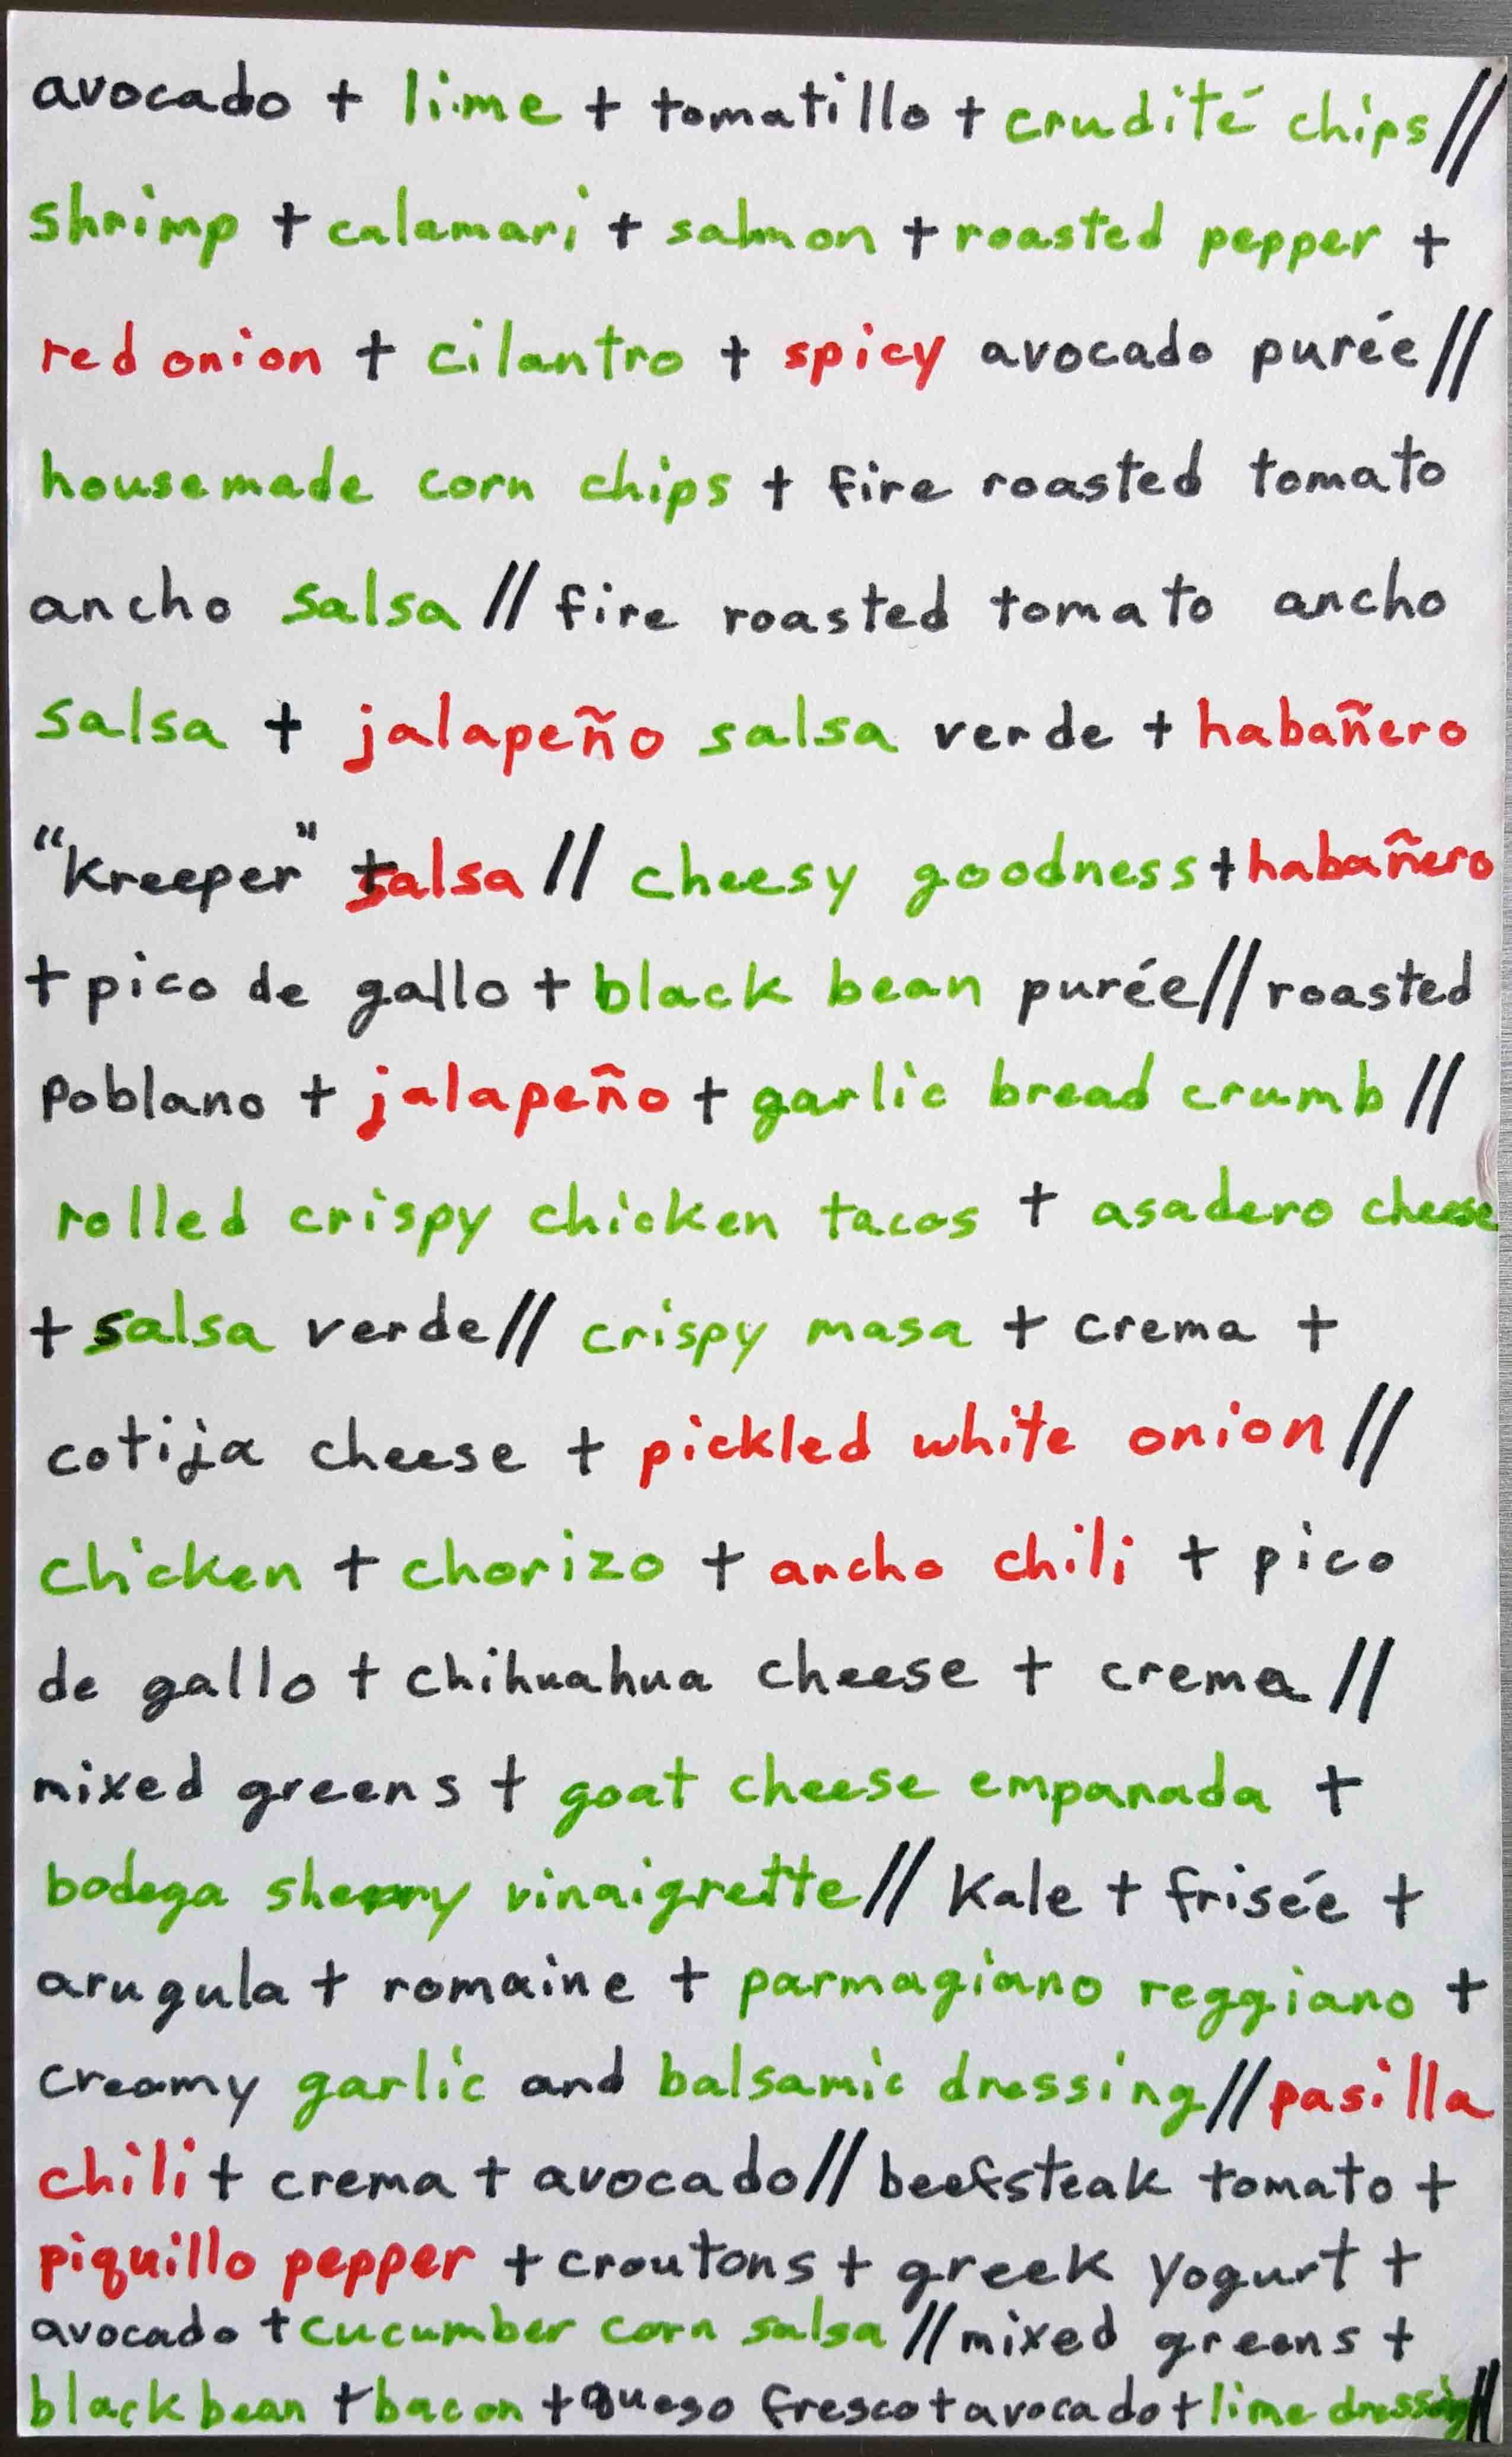 avocado + lime + tomatillo + crudité chips//
shrimp + calamari + salmon + roasted pepper +
red onion + cilantro + spicy avocado purée//
housemade corn chips + fire roasted tomato
ancho salsa // fire roasted tomato ancho
salsa + jalapeño salsa verde + habañero
"Kreeper" salsa // cheesy goodness + habañero
+ pico de gallo + black bean purée // roasted
poblano + jalapeño + garlic bread crumb //
rolled crispy chicken tacos + asadero cheese
+ salsa verde // crispy masa + crema +
cotija cheese + pickled white onion //
chicken + chorizo + ancho chili + pico
de gallo + chihuahua cheese + crema //
mixed greens + goat cheese empanada +
bodega sherry vinaigrette // Kale + frisée +
arugula + romaine + parmagiano reggiano +
creamy garlic and balsamic dressing // pasilla
chili + crema + avocado // beefsteak tomato +
piquillo pepper + croutons + greek yogurt +
avocado + cucumber corn salsa // mixed greens +
black bean + bacon + queso fresco + avocado + lime dressing //